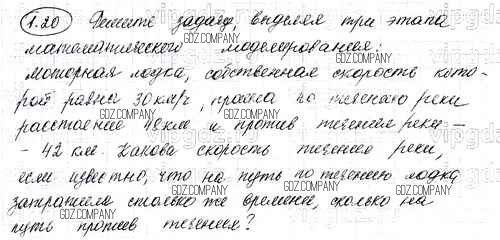 1.20 Решите задачу, выделяя три этапа
математического моделирования:
моторная лодка, собственная скорость кото-
рой равна 30 км/ч, прошла по течению реки
расстояние 48 км и против течения реки –
- 42 км. Какова скорость течения реки,
если известно, что на путь по течению лодка
затратила столько же времени, сколько на
путь против течения?